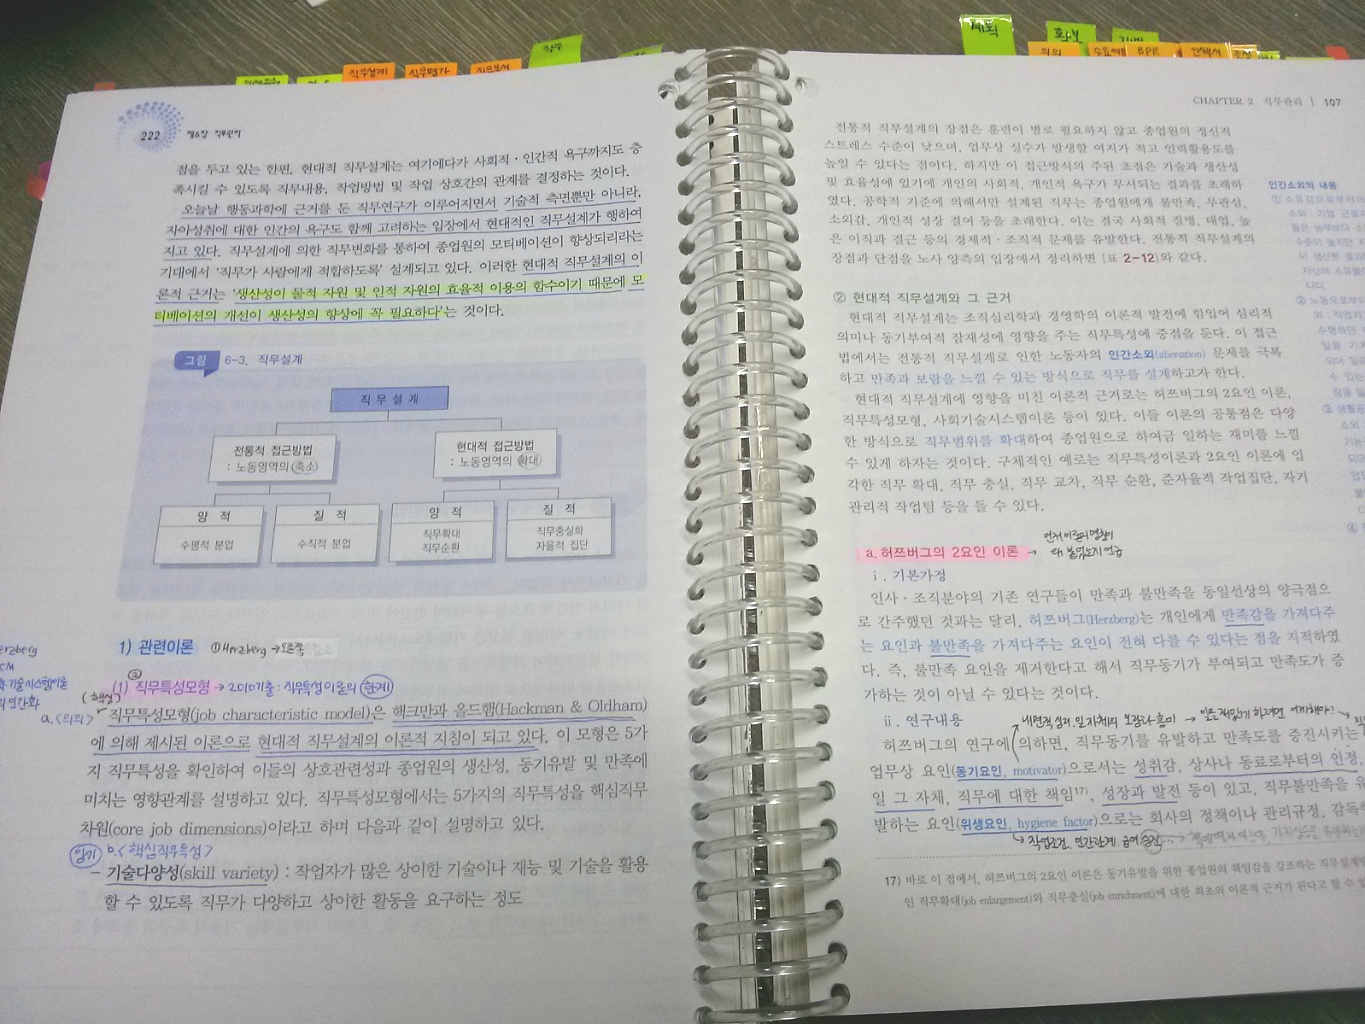 계획
확보
직무설계
직무평가
의의
BPR
222
제6장 직무관리
점을 두고 있는 한편, 현대적 직무설계는 여기에다가 사회적·인간적 욕구까지도 충
족시킬 수 있도록 직무내용, 작업방법 및 작업 상호간의 관계를 결정하는 것이다.
오늘날 행동과학에 근거를 둔 직무연구가 이루어지면서 기술적 측면뿐만 아니라,
자아성취에 대한 인간의 욕구도 함께 고려하는 입장에서 현대적인 직무설계가 행하여
지고 있다. 직무설계에 의한 직무변화를 통하여 종업원의 모티베이션이 향상되리라는
기대에서 '직무가 사람에게 적합하도록' 설계되고 있다. 이러한 현대적 직무설계의 이
론적 근거는 '생산성이 물적 자원 및 인적 자원의 효율적 이용의 함수이기 때문에 모
티베이션의 개선이 생산성의 향상에 꼭 필요하다'는 것이다.
그림 6-3. 직무설계
직무설계
전통적 접근방법
: 노동영역의 축소
현대적 접근방법
: 노동영역의 확대
양 적
수평적 분업
질 적
수직적 분업
양 적
직무확대
직무순환
질 적
직무충실화
자율적 집단
1) 관련이론 ①Herzberg →
(1) 직무특성모형 → 2010기출: 직무특성이론의 한계
a.<의의>
직무특성모형(job characteristic model)은 해크만과 올드햄(Hackman & Oldham)
에 의해 제시된 이론으로 현대적 직무설계의 이론적 지침이 되고 있다. 이 모형은 5가
지 직무특성을 확인하여 이들의 상호관련성과 종업원의 생산성, 동기유발 및 만족에
미치는 영향관계를 설명하고 있다. 직무특성모형에서는 5가지의 직무특성을 핵심직무
차원(core job dimensions)이라고 하며 다음과 같이 설명하고 있다.
암기 b.<핵심직무특성>
- 기술다양성(skill variety) : 작업자가 많은 상이한 기술이나 재능 및 기술을 활용
할 수 있도록 직무가 다양하고 상이한 활동을 요구하는 정도
CHAPTER 2 직무관리 | 107
전통적 직무설계의 장점은 훈련이 별로 필요하지 않고 종업원의 정신적
스트레스 수준이 낮으며, 업무상 실수가 발생할 여지가 적고 인력활용도를
높일 수 있다는 점이다. 하지만 이 접근방식의 주된 초점은 기술과 생산성
및 효율성에 있기에 개인의 사회적, 개인적 욕구가 무시되는 결과를 초래하
였다. 공학적 기준에 의해서만 설계된 직무는 종업원에게 불만족, 무관심,
소외감, 개인적 성장 결여 등을 초래한다. 이는 결국 사회적 질병, 태업, 높
은 이직과 결근 등의 경제적·조직적 문제를 유발한다. 전통적 직무설계의
장점과 단점을 노사 양측의 입장에서 정리하면 [표 2-12]와 같다.
② 현대적 직무설계와 그 근거
현대적 직무설계는 조직심리학과 경영학의 이론적 발전에 힘입어 심리적
의미나 동기부여적 잠재성에 영향을 주는 직무특성에 중점을 둔다. 이 접근
법에서는 전통적 직무설계로 인한 노동자의 인간소외(alienation) 문제를 극복
하고 만족과 보람을 느낄 수 있는 방식으로 직무를 설계하고자 한다.
현대적 직무설계에 영향을 미친 이론적 근거로는 허쯔버그의 2요인 이론,
직무특성모형, 사회기술시스템이론 등이 있다. 이들 이론의 공통점은 다양
한 방식으로 직무범위를 확대하여 종업원으로 하여금 일하는 재미를 느낄
수 있게 하자는 것이다. 구체적인 예로는 직무특성이론과 2요인 이론에 입
각한 직무 확대, 직무 충실, 직무 교차, 직무 순환, 준자율적 작업집단, 자기
관리적 작업팀 등을 들 수 있다.
a. 허쯔버그의 2요인 이론
i. 기본가정
인사·조직분야의 기존 연구들이 만족과 불만족을 동일선상의 양극점으
로 간주했던 것과는 달리, 허쯔버그(Herzberg)는 개인에게 만족감을 가져다주
는 요인과 불만족을 가져다주는 요인이 전혀 다를 수 있다는 점을 지적하였
다. 즉, 불만족 요인을 제거한다고 해서 직무동기가 부여되고 만족도가 증
가하는 것이 아닐 수 있다는 것이다.
ii. 연구내용
허쯔버그의 연구에 의하면, 직무동기를 유발하고 만족도를 증진시키는
업무상 요인(동기요인, motivator)으로서는 성취감, 상사나 동료로부터의 인정,
일 그 자체, 직무에 대한 책임17), 성장과 발전 등이 있고, 직무불만족을 유
발하는 요인(위생요인, hygiene factor)으로는 회사의 정책이나 관리규정, 감독
→ 작업조건, 인간관계, 급여
17) 바로 이 점에서, 허쯔버그의 2요인 이론은 동기유발을 위한 종업원의 책임감을 강조하는 직무설계
인 직무확대(job enlargement)와 직무충실(job enrichment)에 대한 최초의 이론적 근거가 된다고 할 수
인간소외의 내용